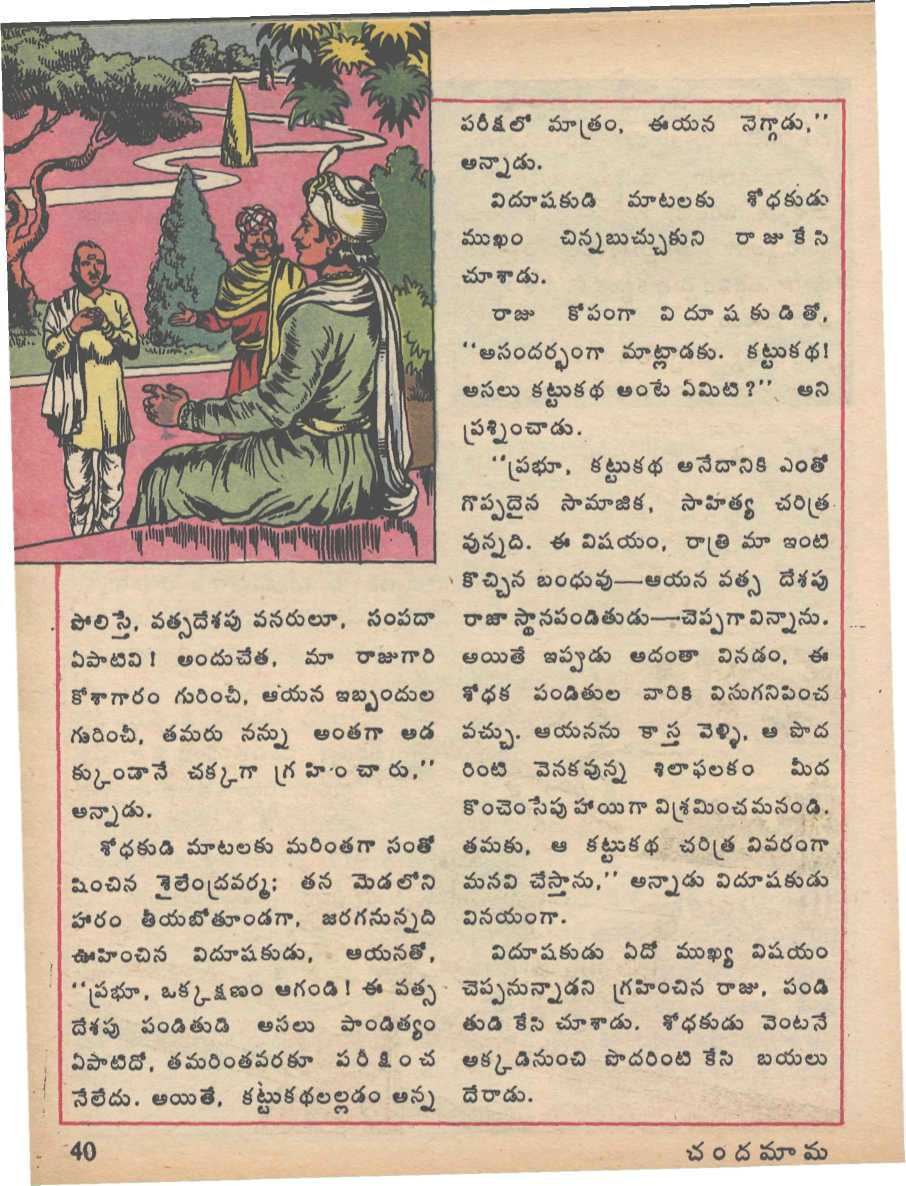 పోలిస్తే, వత్సదేశపు వనరులూ, సంపదా
ఏపాటివి! అందుచేత, మా రాజుగారి
కోశాగారం గురించీ, ఆయన ఇబ్బందుల
గురించీ, తమరు నన్ను అంతగా అడ
క్కుండానే చక్కగా గ్రహించారు,''
అన్నాడు.
శోధకుడి మాటలకు మరింతగా సంతో
షించిన శైలేంద్రవర్మ; తన మెడలోని
హారం తీయబోతూండగా, జరగనున్నది
ఊహించిన విదూషకుడు, ఆయనతో,
''ప్రభూ, ఒక్కక్షణం ఆగండి! ఈ వత్స
దేశపు పండితుడి అసలు పాండిత్యం
ఏపాటిదో, తమరింతవరకూ పరీక్షించ
నేలేదు. అయితే, కట్టుకథలల్లడం అన్న
పరీక్షలో మాత్రం, ఈయన నెగ్గాడు,''
అన్నాడు.
విదూషకుడి మాటలకు శోధకుడు
ముఖం చిన్నబుచ్చుకుని రాజుకేసి
చూశాడు.
రాజు కోపంగా విదూషకుడితో,
''అసందర్భంగా మాట్లాడకు. కట్టుకథ!
అసలు కట్టుకథ అంటే ఏమిటి?'' అని
ప్రశ్నించాడు.
''ప్రభూ, కట్టుకథ అనేదానికి ఎంతో
గొప్పదైన సామాజిక, సాహిత్య చరిత్ర
వున్నది. ఈ విషయం, రాత్రి మా ఇంటి
కొచ్చిన బంధువు—ఆయన వత్స దేశపు
రాజాస్థానపండితుడు—చెప్పగావిన్నాను.
అయితే ఇప్పుడు అదంతా వినడం, ఈ
శోధక పండితుల వారికి విసుగనిపించ
వచ్చు. ఆయనను కాస్త వెళ్ళి, ఆ పొద
రింటి వెనకవున్న శిలాఫలకం మీద
కొంచెంసేపు హాయిగా విశ్రమించమనండి.
తమకు, ఆ కట్టుకథ చరిత్ర వివరంగా
మనవి చేస్తాను,'' అన్నాడు విదూషకుడు
వినయంగా.
విదూషకుడు ఏదో ముఖ్య విషయం
చెప్పనున్నాడని గ్రహించిన రాజు, పండి
తుడి కేసి చూశాడు. శోధకుడు వెంటనే
అక్కడినుంచి పొదరింటి కేసి బయలు
దేరాడు.
40
చందమామ